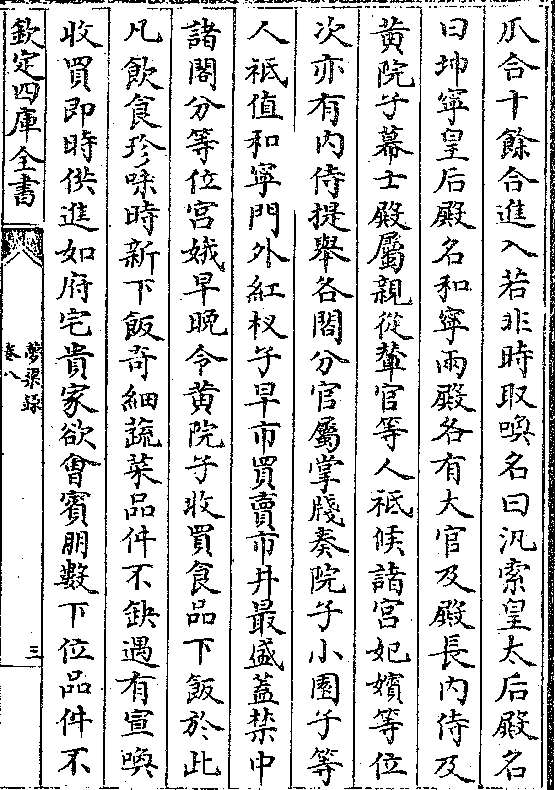 爪合十餘合進入若非時取喚名曰汎索皇太后殿名
曰坤寧皇后殿名和寧兩殿各有大官及殿長內侍及
黃院子幕士殿屬親從輦官等人祗候諸宮妃嬪等位
次亦有內侍提舉各閤分官屬掌牋奏院子小園子等
人祗值和寧門外紅杈子早市買賣市井最盛蓋禁中
諸閤分等位宮娥早晚令黃院子收買食品下飯於此
凡飲食珍味時新下飯奇細蔬菜品件不缺遇有宣喚
收買即時供進如府宅貴家欲會賓朋數下位品件不
欽定四庫全書
夢粱錄
卷八
三